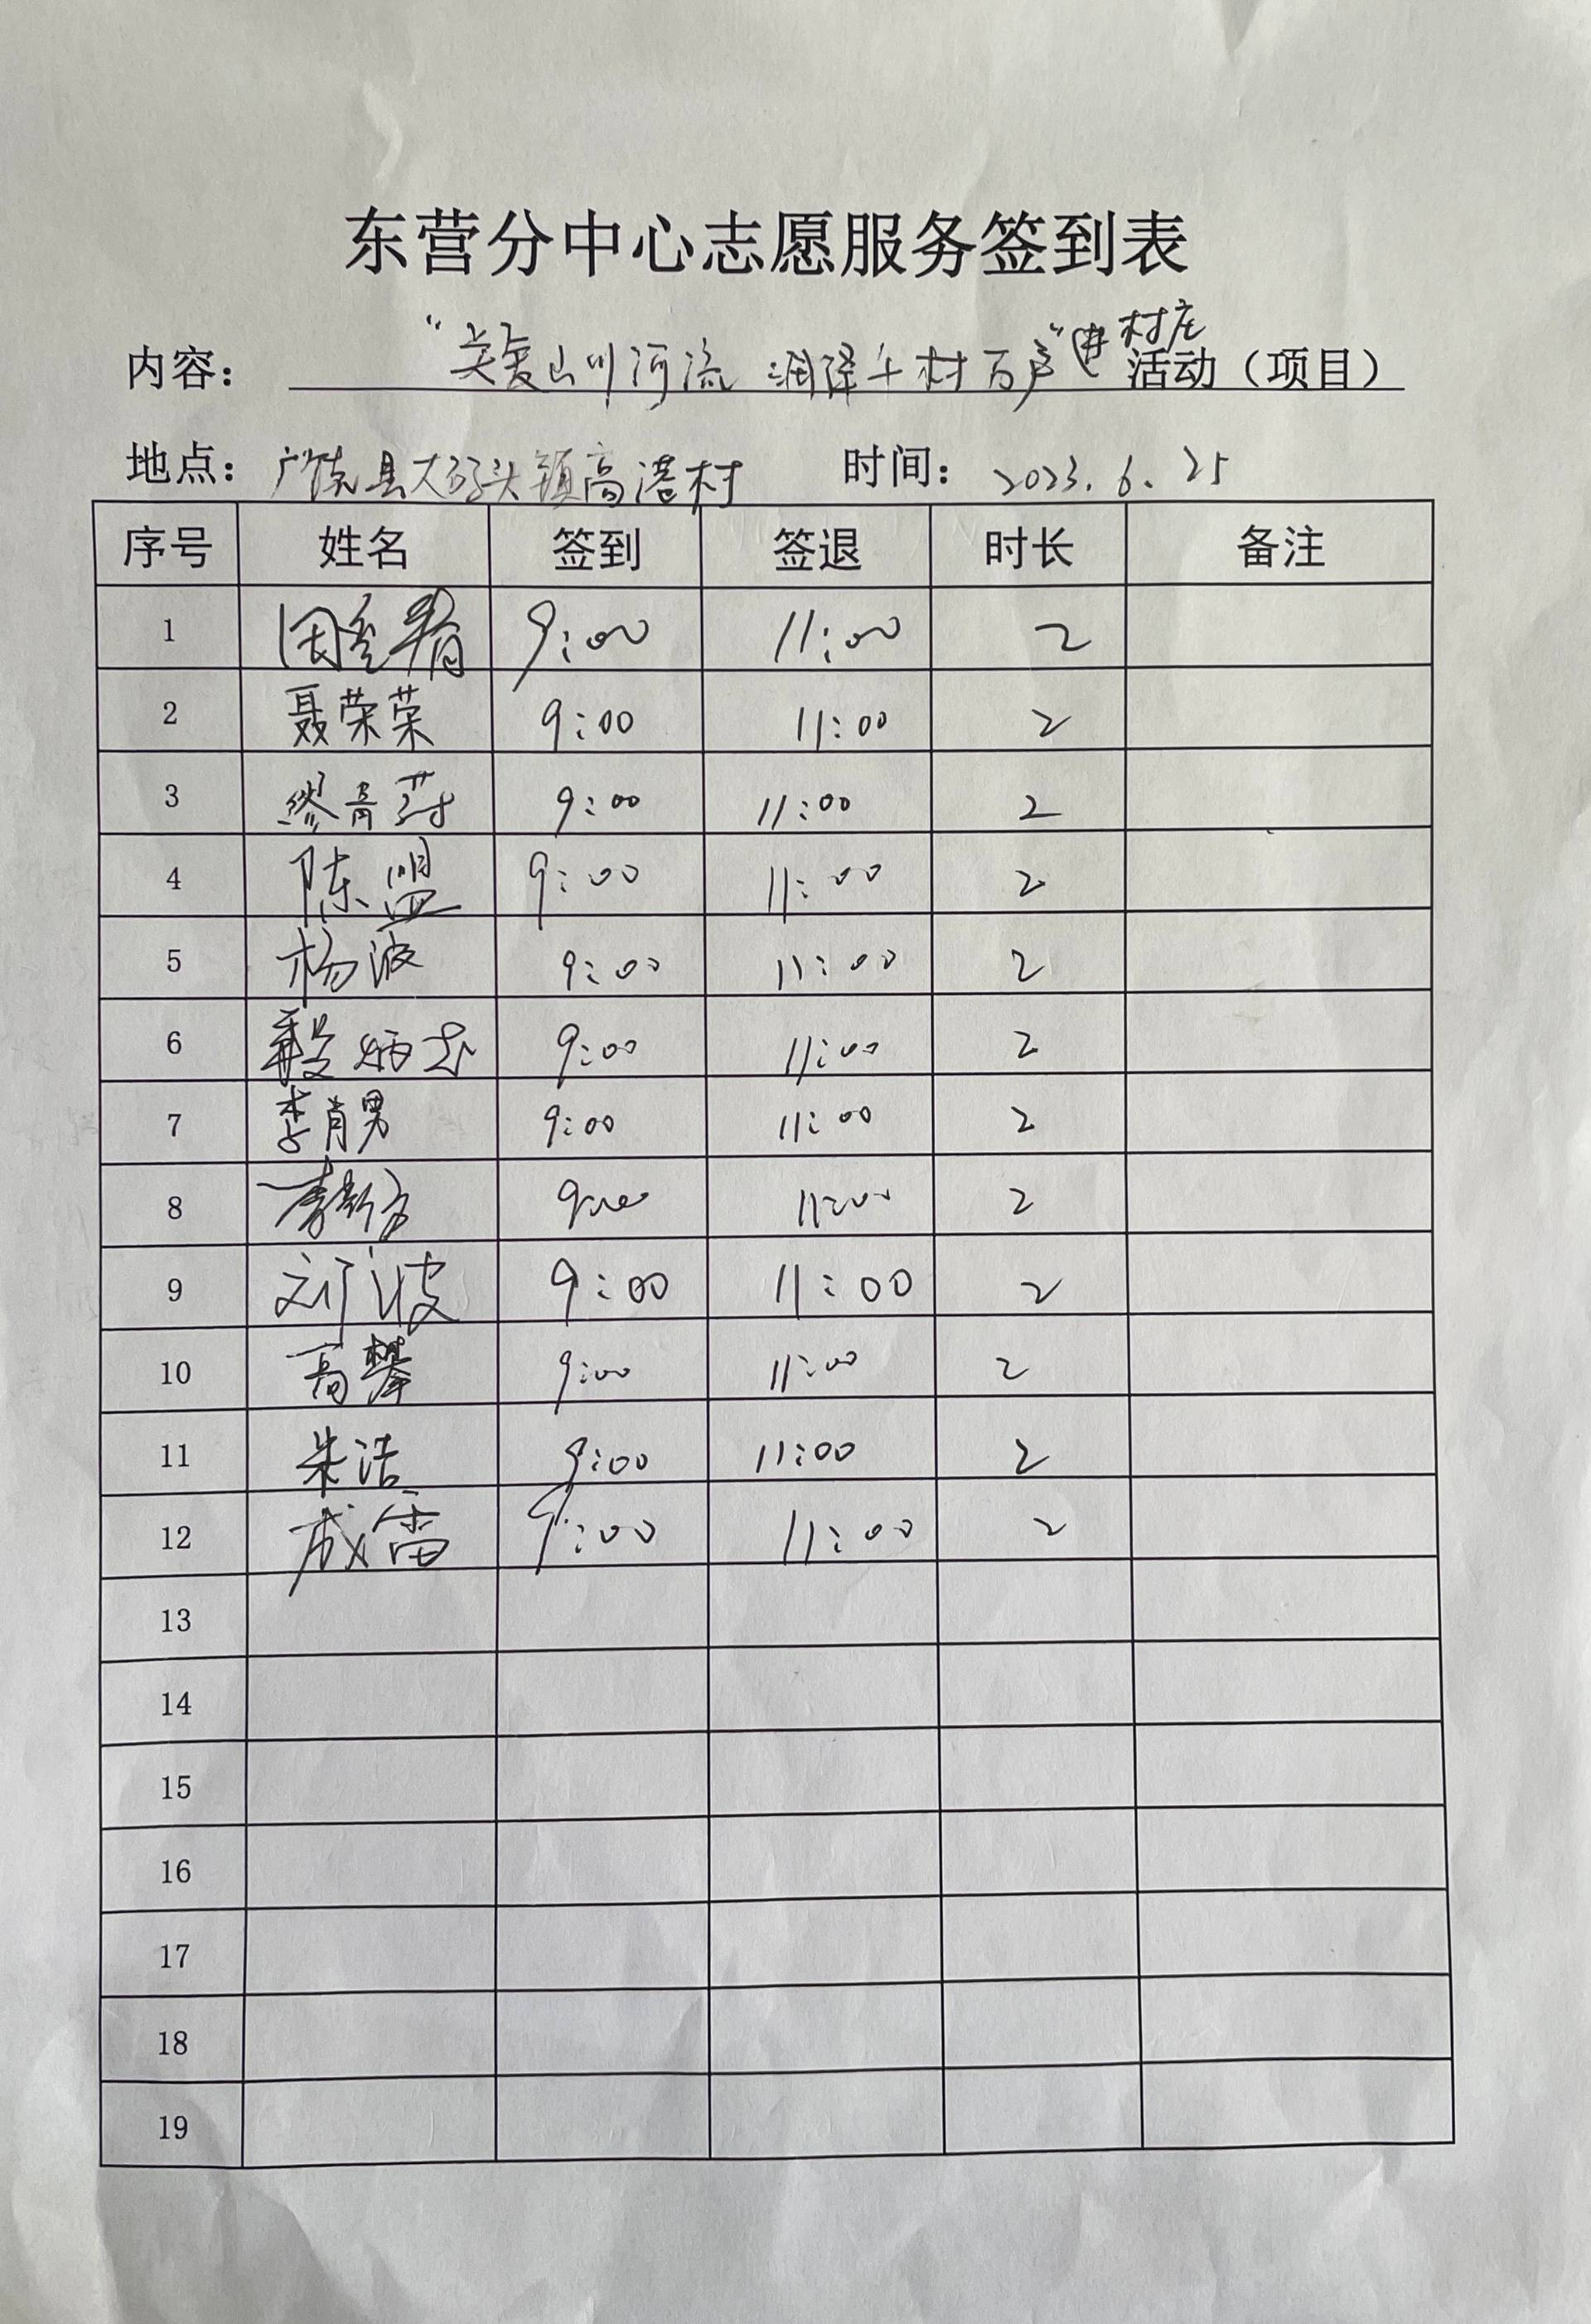 东营分中心志愿服务签到表
内容： “关爱山川河流 润泽千村万户”进村庄 活动（项目）
地点：广饶县大码头镇高港村 时间：2023.6.25
序号 姓名 签到 签退 时长 备注
1 9:00 11:00 2
2 聂荣荣 9:00 11:00 2
3 缪青 9:00 11:00 2
4 陈盟 9:00 11:00 2
5 杨波 9:00 11:00 2
6 9:00 11:00 2
7 李肖男 9:00 11:00 2
8 李新方 9:00 11:00 2
9 刘波 9:00 11:00 2
10 高攀 9:00 11:00 2
11 朱洁 9:00 11:00 2
12 成雷 9:00 11:00 2
13
14
15
16
17
18
19